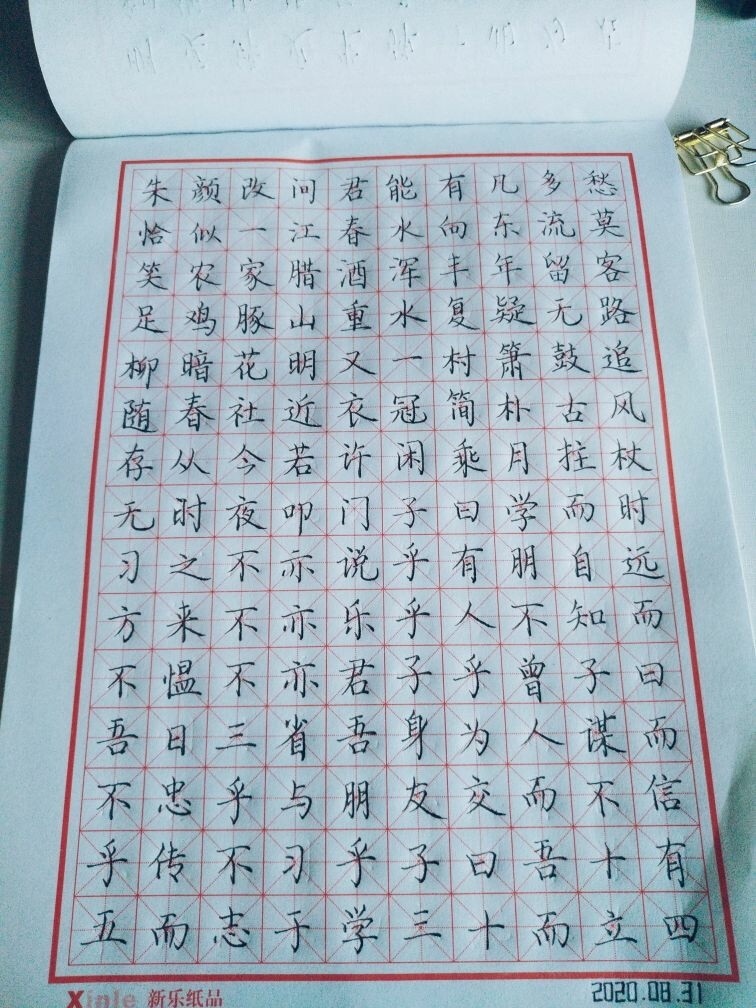 朱颜改问君能有凡多愁
恰似一江春水向东流莫
笑农家腊酒浑丰年留客
足鸡豚山重水复疑无路
柳暗花明又一村箫鼓追
随春社近衣冠简朴古风
存从今若许闲乘月拄杖
无时夜叩门子曰学而时
习之不亦说乎有朋自远
方来不亦乐乎人不知而
不愠不亦君子乎曾子曰
吾日三省吾身为人谋而
不忠乎与朋友交而不信
乎传不习乎子曰吾十有
五而志于学三十而立四
Xinle 新乐纸品
2020.08.31